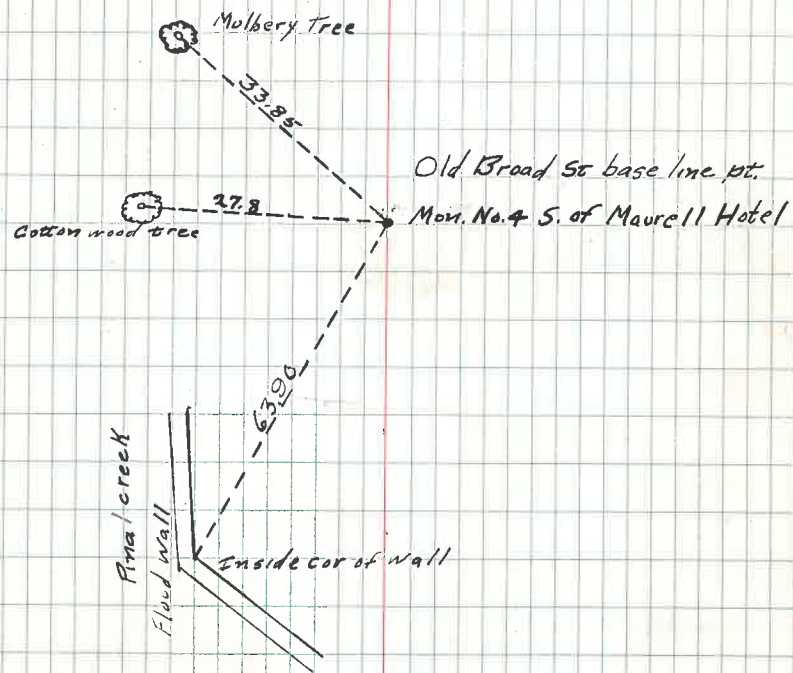 Mulbery Tree
33.85
Old Broad St base line pt.
27.8
Mon. No.4 S. of Maurell Hotel
Cotton wood tree
63.90
Pinal creek
Flood wall
Inside cor of wall